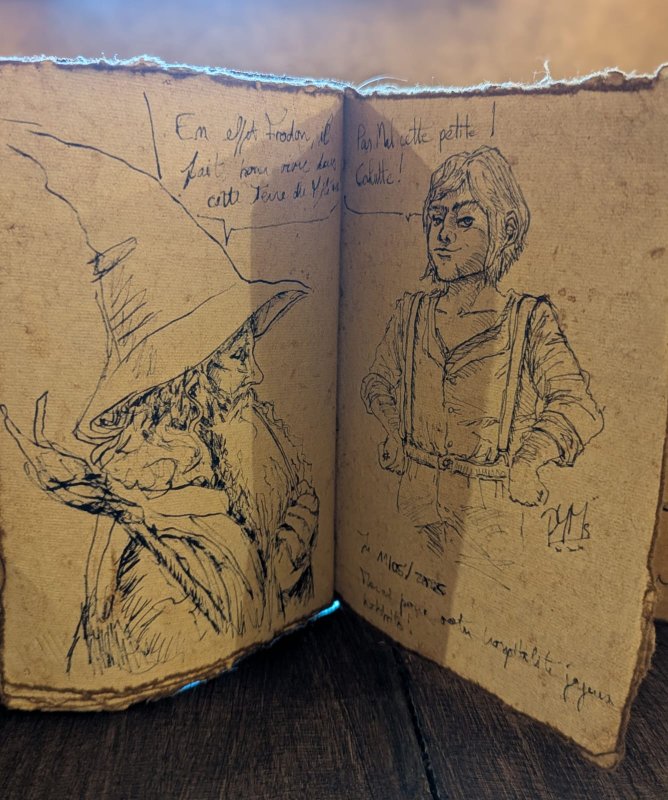 En effet Frodon, il
fait bon vivre dans
cette Terre du Milieu
Pas Mal cette petite
Cahutte !
Le 11/05/2025
Merci pour votre hospitalité joyeux
hobbits !